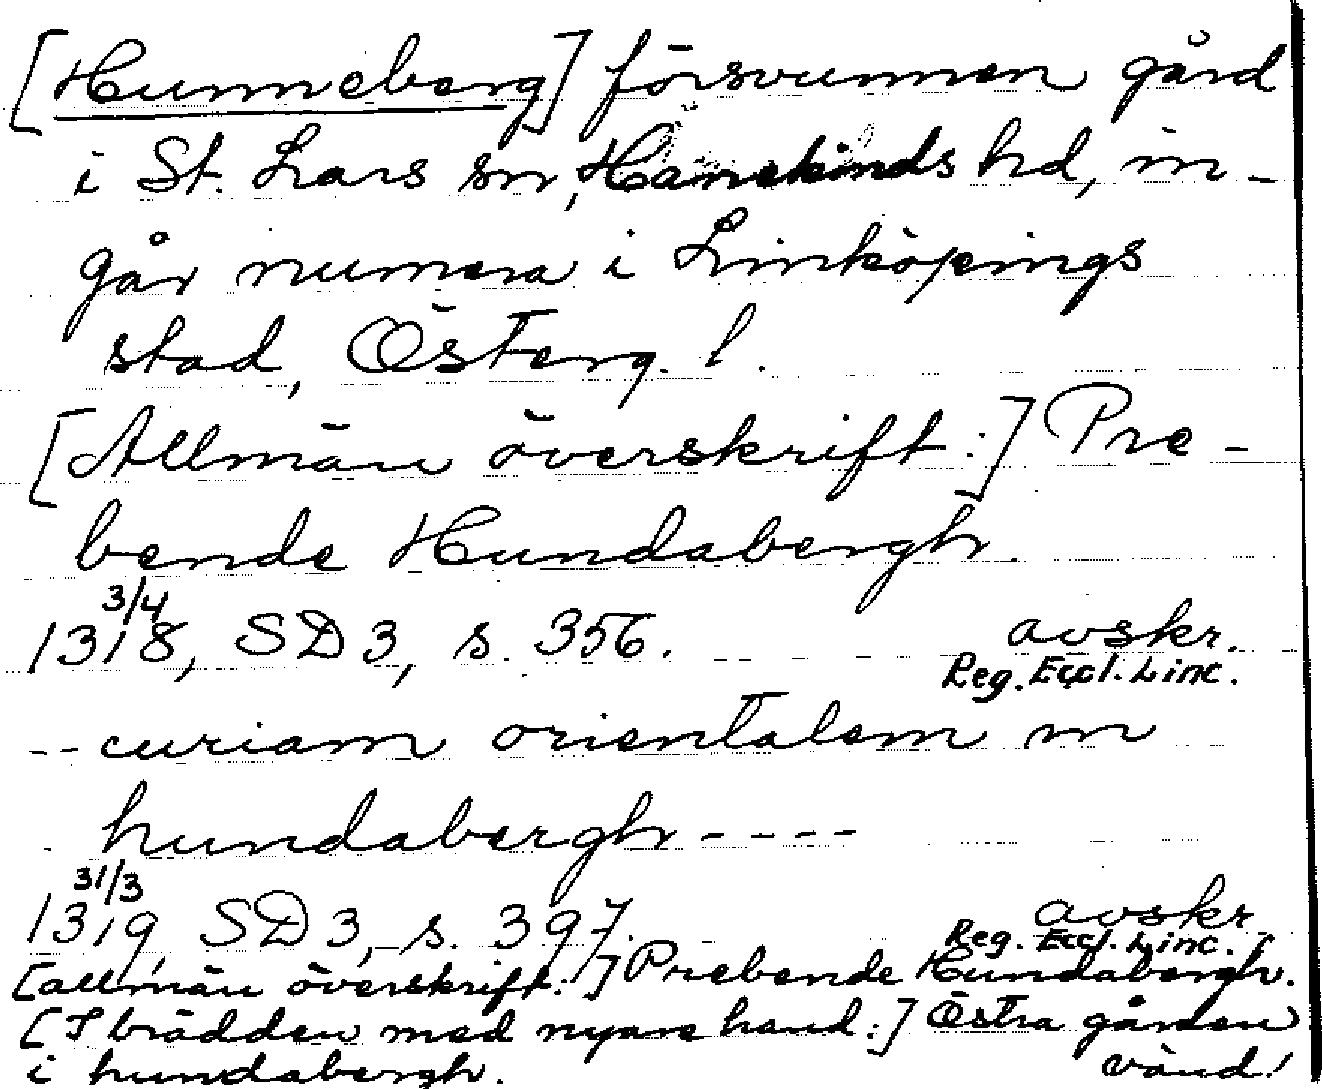 [Hunneberg] försvunnen gård
i St. Lars sn, Hanekinds hd, in-
går numera i Linköpings
stad, Österg. l.
[Allmän överskrift:] Pre-
bende Hundabergh.
3/4
1318, SD 3, s. 356. avskr.
Reg. Eccl. Linc.
-- curiam orientalem in
hundabergh ----
31/3
1319, SD 3, s. 397. avskr.
Reg. Eccl. Linc.
[allmän överskrift:] Prebende Hundabergh.
[I brädden med nyare hand:] Östra gården
i hundabergh. vänd!